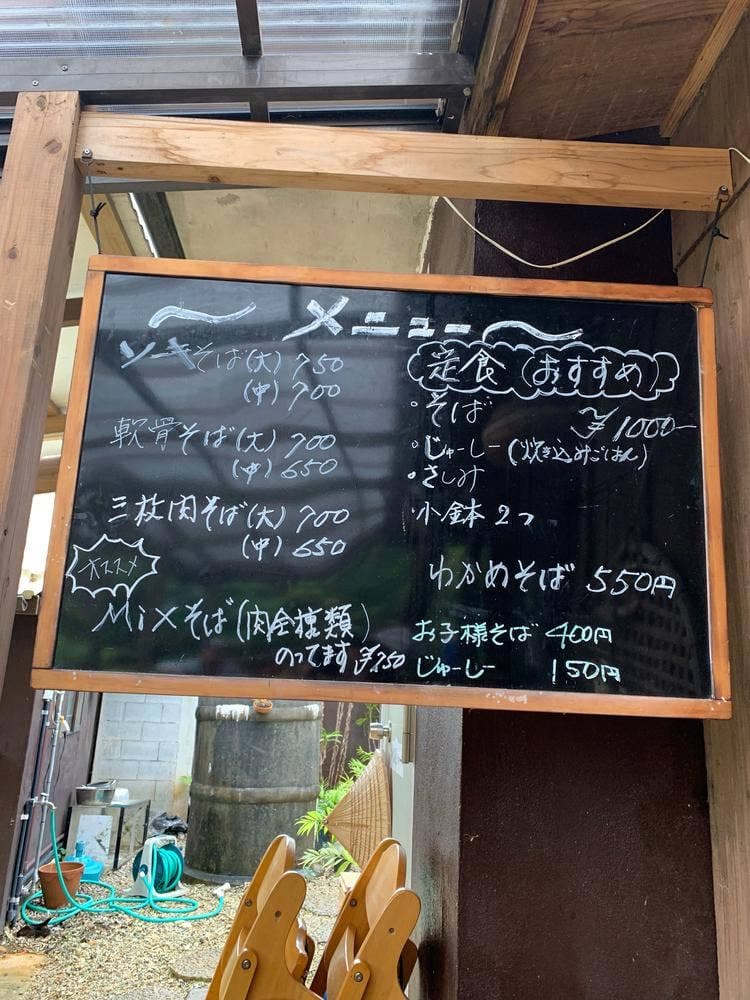 〜 メニュー 〜
ソーキそば(大) 750
(中) 700
軟骨そば(大) 700
(中) 650
三枚肉そば(大) 700
(中) 650
オススメ
Mixそば(肉全種類)
のってます ¥750
定食(おすすめ)
・そば
¥1000-
・じゅーしー(炊き込みごはん)
・さしみ
・小鉢 2つ
わかめそば 550円
お子様そば 400円
じゅーしー 150円